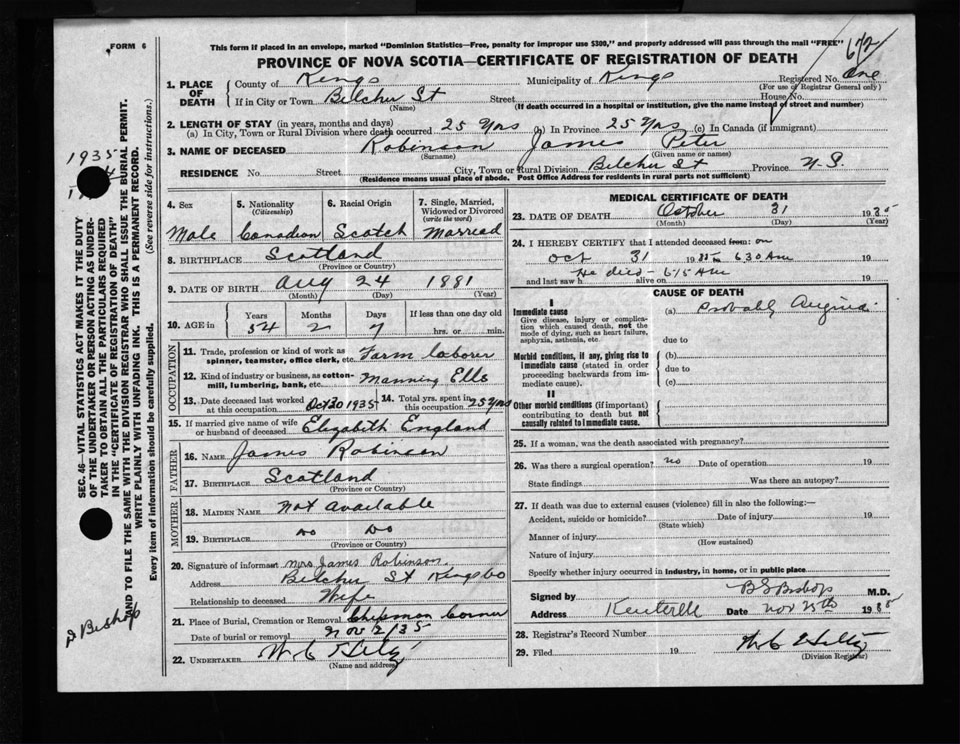 FORM 6
This form if placed in an envelope, marked "Dominion Statistics—Free, penalty for improper use $300," and properly addressed will pass through the mail "FREE"
672
PROVINCE OF NOVA SCOTIA—CERTIFICATE OF REGISTRATION OF DEATH
1. PLACE OF DEATH
County of Kings Municipality of Kings Registered No. One
(For use of Registrar General only)
If in City or Town Belcher St Street House No.
(Name) (If death occurred in a hospital or institution, give the name instead of street and number)
2. LENGTH OF STAY (in years, months and days)
(a) In City, Town or Rural Division where death occurred 25 Yrs (b) In Province 25 Yrs (c) In Canada (if immigrant)
3. NAME OF DECEASED Robinson James Peter
(Surname) (Given name or names)
RESIDENCE No. Street City, Town or Rural Division Belcher St Province N.S.
(Residence means usual place of abode. Post Office Address for residents in rural parts not sufficient)
4. Sex Male
5. Nationality (Citizenship) Canadian
6. Racial Origin Scotch
7. Single, Married, Widowed or Divorced (write the word) Married
8. BIRTHPLACE Scotland
(Province or Country)
9. DATE OF BIRTH Aug 24 1881
(Month) (Day) (Year)
10. AGE in Years Months Days If less than one day old
54 2 7 hrs. or min.
OCCUPATION
11. Trade, profession or kind of work as spinner, teamster, office clerk, etc. Farm laborer
12. Kind of industry or business, as cotton-mill, lumbering, bank, etc. Manning Ells
13. Date deceased last worked at this occupation Oct 30 1935
14. Total yrs. spent in this occupation 25 yrs
15. If married give name of wife or husband of deceased Elizabeth England
FATHER
16. NAME James Robinson
17. BIRTHPLACE Scotland
(Province or Country)
MOTHER
18. MAIDEN NAME Not available
19. BIRTHPLACE Do Do
(Province or Country)
20. Signature of informant Mrs James Robinson
Address Belcher St Kings Co
Relationship to deceased Wife
21. Place of Burial, Cremation or Removal Chipman Corner
Date of burial or removal Nov 2/35
22. UNDERTAKER
(Name and address)
MEDICAL CERTIFICATE OF DEATH
23. DATE OF DEATH October 31 1935
(Month) (Day) (Year)
24. I HEREBY CERTIFY that I attended deceased from: on
Oct 31 1935 to 6 30 AM 19
He died - 6 15 AM
and last saw h alive on 19
CAUSE OF DEATH
I
Immediate cause
Give disease, injury or complication which caused death, not the mode of dying, such as heart failure, asphyxia, asthenia, etc.
(a) Probably Angina
due to
Morbid conditions, if any, giving rise to immediate cause (stated in order proceeding backwards from immediate cause).
(b)
due to
(c)
II
Other morbid conditions (if important) contributing to death but not causally related to immediate cause.
25. If a woman, was the death associated with pregnancy?
26. Was there a surgical operation? no Date of operation 19
State findings Was there an autopsy?
27. If death was due to external causes (violence) fill in also the following:—
Accident, suicide or homicide? Date of injury 19
(State which)
Manner of injury
(How sustained)
Nature of injury
Specify whether injury occurred in industry, in home, or in public place
Signed by B S Bishop M.D.
Address Kentville Date Nov 25th 1935
28. Registrar's Record Number
29. Filed 19
(Division Registrar)
SEC. 46—VITAL STATISTICS ACT MAKES IT THE DUTY
OF THE UNDERTAKER OR PERSON ACTING AS UNDER-
TAKER TO OBTAIN ALL THE PARTICULARS REQUIRED
IN THE "CERTIFICATE OF REGISTRATION OF DEATH"
AND TO FILE THE SAME WITH THE DIVISION REGISTRAR WHO SHALL ISSUE THE BURIAL PERMIT.
WRITE PLAINLY WITH UNFADING INK. THIS IS A PERMANENT RECORD.
Every item of information should be carefully supplied. (See reverse side for instructions.)
1935
Bishop